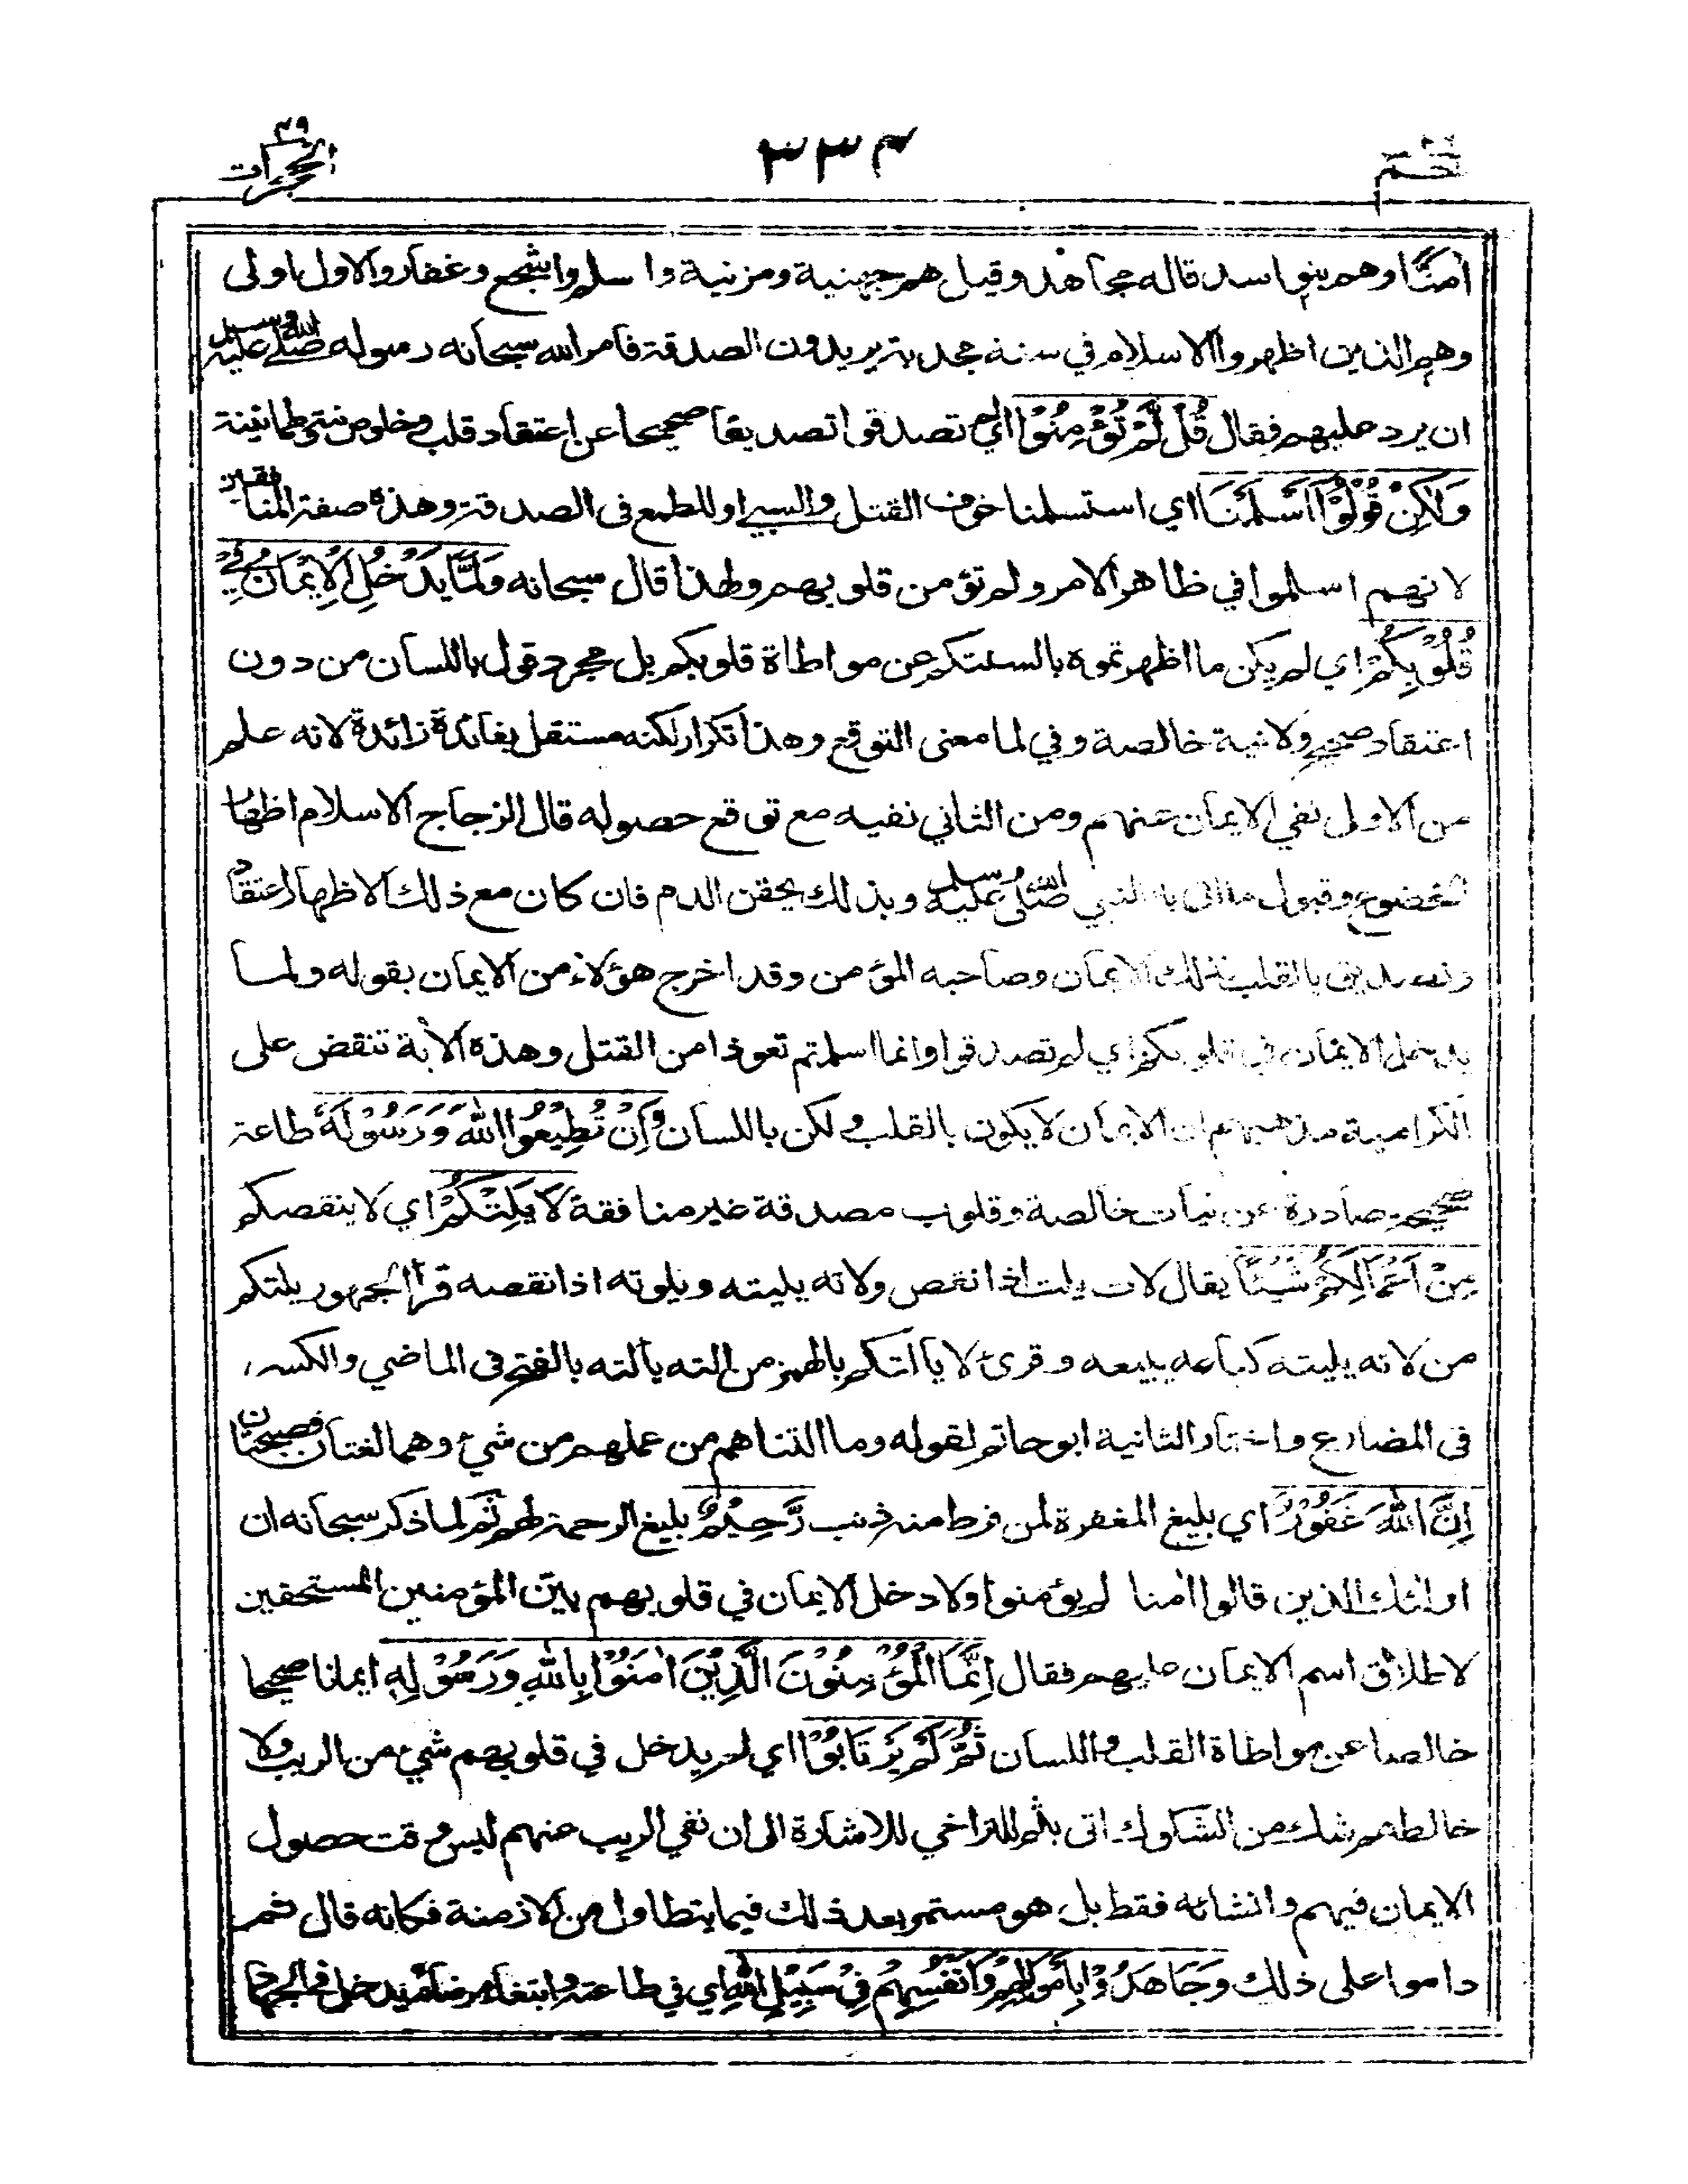 حٰم ٢٦
٣٣٤
الحجرات ٤٩
اٰمَنَّا وهم بنو اسد قاله مجاهد وقيل هم جهينة ومزينة واسلم واشجع وغفار والاول اولى
وهم الذين اظهروا الاسلام في سنة مجدبة يريدون الصدقة فامر الله سبحانه رسوله صلى الله عليه وسلم
ان يرد عليهم فقال قُلْ لَّمْ تُؤْمِنُوْا اي لم تصدقوا تصديقا صحيحا عن اعتقاد قلب وخلوص نية وطمانينة
وَلٰكِنْ قُوْلُوْا اَسْلَمْنَا اي استسلمنا خوف القتل والسبي او للطمع في الصدقة وهذه صفة المنافقين
لانهم اسلموا في ظاهر الامر ولم تؤمن قلوبهم ولهذا قال سبحانه وَلَمَّا يَدْخُلِ الْاِيْمَانُ فِيْ
قُلُوْبِكُمْ اي لم يكن ما اظهرتموه بالسنتكم عن مواطاة قلوبكم بل مجرد قول باللسان من دون
اعتقاد صحيح ولا نية خالصة وفي لما معنى التوقع وهذا تكرار لكنه مستقل بفائدة زائدة لانه علم
من الاول نفي الايمان عنهم ومن الثاني نفيه مع توقع حصوله قال الزجاج الاسلام اظهار
الخضوع وقبول ما اتى به النبي صلى الله عليه وسلم وبذلك يحقن الدم فان كان مع ذلك الاظهار اعتقاد
وتصديق بالقلب فذلك الايمان وصاحبه المؤمن وقد اخرج هؤلاء من الايمان بقوله ولما
يدخل الايمان في قلوبكم اي لم تصدقوا وانما اسلمتم تعوذا من القتل وهذه الآية تنقض على
الكرامية مذهبهم ان الايمان لا يكون بالقلب ولكن باللسان وَاِنْ تُطِيْعُوا اللّٰهَ وَرَسُوْلَهٗ طاعة
صحيحة صادرة عن نيات خالصة وقلوب مصدقة غير منافقة لَا يَلِتْكُمْ اي لا ينقصكم
مِّنْ اَعْمَالِكُمْ شَيْئًا يقال لات يلت اذا نقص ولاته يليته ويلوته اذا نقصه قرأ الجمهور يلتكم
من لاته يليته كباعه يبيعه وقرئ لا يالتكم بالهمز من التَه يألته بالفتح في الماضي والكسر
في المضارع واختار الثانية ابو حاتم لقوله وما التناهم من عملهم من شيء وهما لغتان فصيحتان
اِنَّ اللّٰهَ غَفُوْرٌ اي بليغ المغفرة لمن فرط منه ذنب رَّحِيْمٌ بليغ الرحمة لهم ثم لما ذكر سبحانه ان
اولئك الذين قالوا اٰمنا لم يؤمنوا ولا دخل الايمان في قلوبهم بين المؤمنين المستحقين
لاطلاق اسم الايمان عليهم فقال اِنَّمَا الْمُؤْمِنُوْنَ الَّذِيْنَ اٰمَنُوْا بِاللّٰهِ وَرَسُوْلِهٖ ايمانا صحيحا
خالصا عن مواطاة القلب واللسان ثُمَّ لَمْ يَرْتَابُوْا اي لم يدخل في قلوبهم شيء من الريب ولا
خالطهم شك من الشكوك اتى بثم للتراخي للاشارة الى ان نفي الريب عنهم ليس وقت حصول
الايمان فيهم وانشائه فقط بل هو مستمر بعد ذلك فيما يتطاول من الازمنة فكانه قال ثم
داموا على ذلك وَجَاهَدُوْا بِاَمْوَالِهِمْ وَاَنْفُسِهِمْ فِيْ سَبِيْلِ اللّٰهِ اي في طاعته وابتغاء مرضاته ويدخل في الجهاد